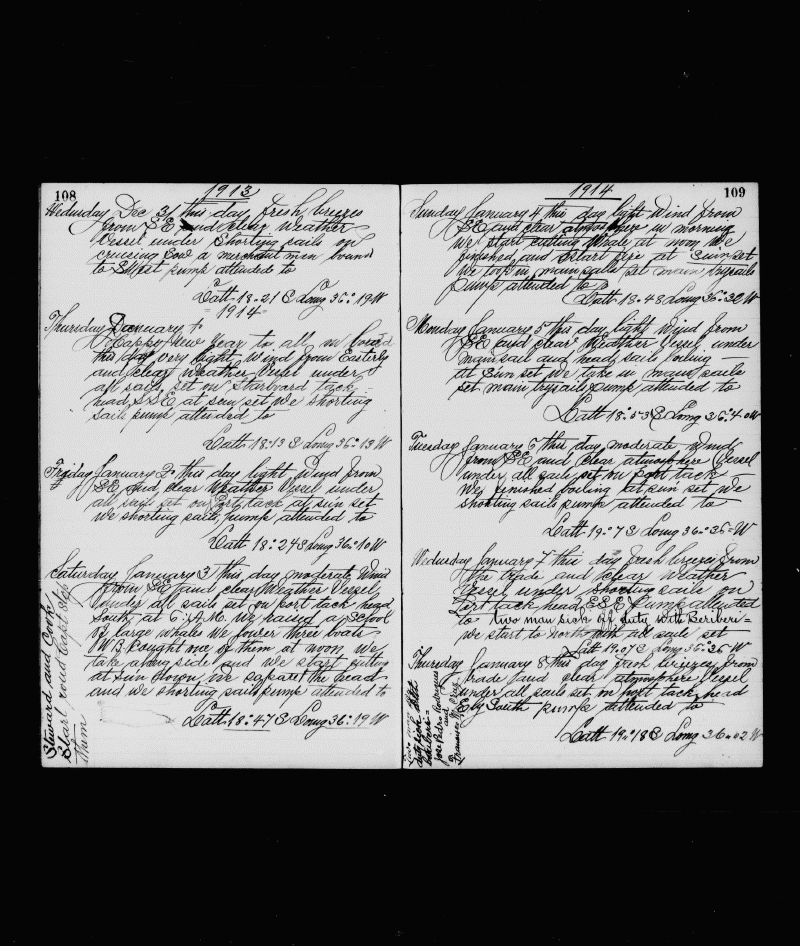 108
1913
Wedusday Dec 31 this day fresh brezes
from SE and clear weather
Vessel under Shorting sails on
cruising a merchant man bound
to pump attended to
Latt-18-21 S Long 36:19W
1914
Thursday January 1
Happy New Year to all on board
this day very light Wind from Easterly
and clear weather Vessel under
all sails set on Starboard tack
head SSE at sun set We shorting
sails pump attended to
Latt 18:13 S Long 36:13W
Friday January 2 this day light Wind from
SE and clear Weather Vessel under
all sails set on Port tack at sun set
we shorting sails, pump attended to
Latt 18:24 S Long 36:10W
Saturday January 3 this day moderate Wind
from SE and clear Weather Vessel
under all sails set on port tack head
South, at 6:A.M. We raised a School
of large whales We lower three boats
W B caught one of them at noon We
take alongside and we start cutting
at sun down, we the head
and we shorting sails pump attended to
Latt-18:47 S Long 36:19W
Steward and Cook
Start
them
109
1914
Sunday January 4 this day light Wind from
SE and clear atmosphere in morning
We start cutting Whale at noon We
finished and start fire at Sunset
We took in main sails set main trysails
Pump attended to
Latt-18-48 Long 36:32W
Monday January 5 this day light Wind from
SE and clear Weather Vessel under
main sail and head sails boiling
at Sun set We take in main sails
set main trysails pump attended to
Latt 18:53 S Long 36:40W
Tuesday January 6 this day moderate Wind
from SE and clear atmosphere Vessel
under all sails set on port tack
We finished boiling at sun set We
shorting sails pump attended to
Latt 19:7 S Long 36:36W
Wednesday January 7 this day fresh brezes from
the trade and clear weather
Vessel under shorting sails on
Port tack head ESE Pump attended
to two man sick off duty with Beriberi
we start to north with all sails set
Latt 19.07 S Long 36:36W
Thursday January 8 this day fresh brezes from
trade and clear atmosphere Vessel
under all sails set on port tack head
E by South pumps attended to
Latt 19:18 S Long 36:02W
Jose Pedro
and